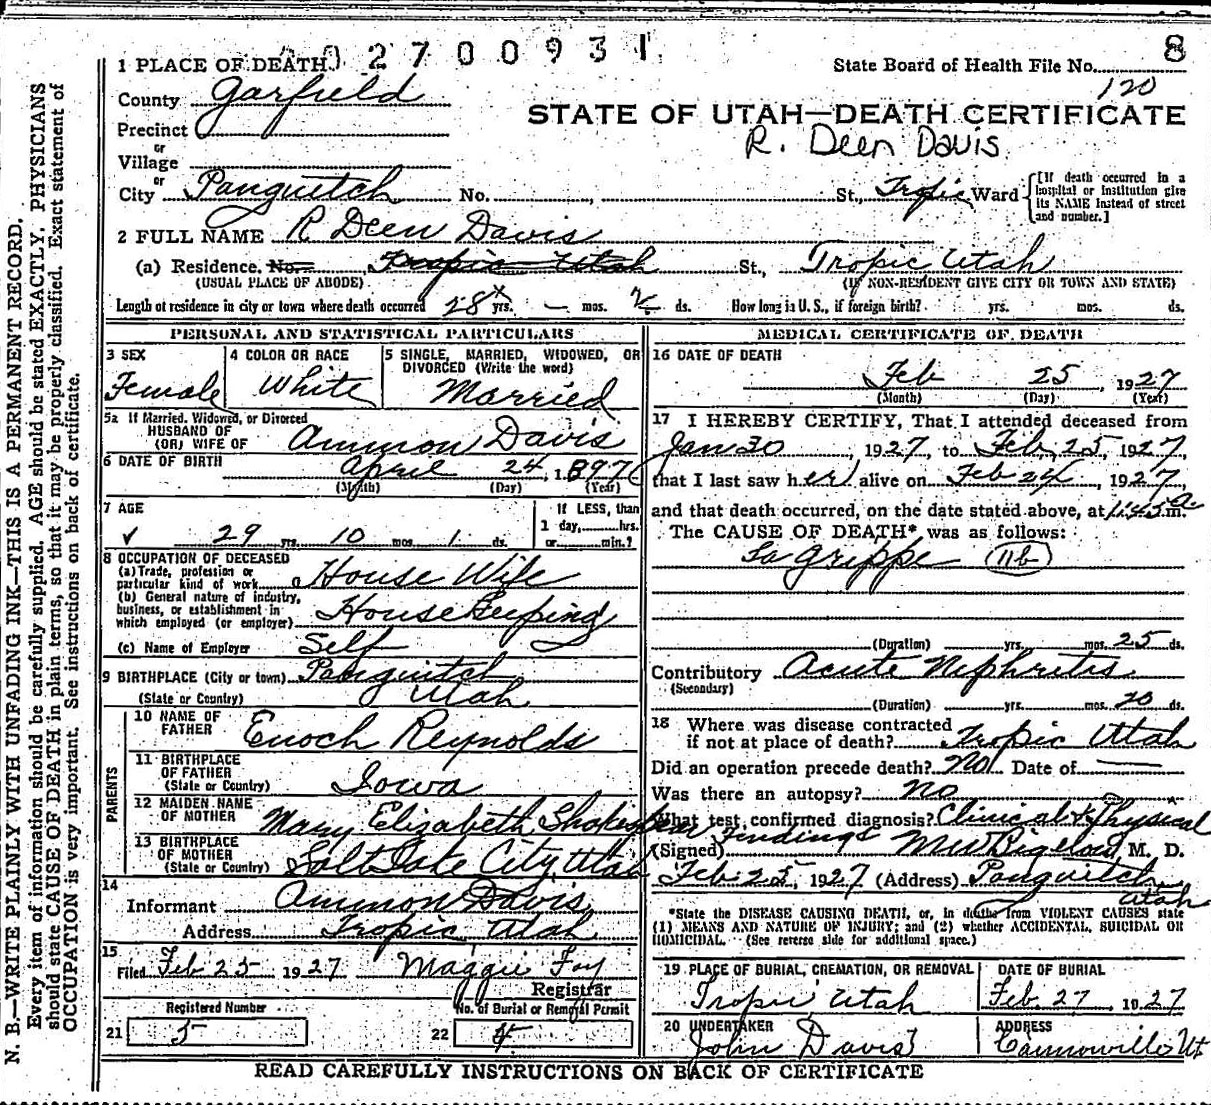 02700931
8
1 PLACE OF DEATH
State Board of Health File No.
120
County Garfield
STATE OF UTAH—DEATH CERTIFICATE
Precinct
R. Deen Davis
or
Village
or
City Panguitch No. , St., Tropic Ward
[If death occurred in a hospital or institution give its NAME instead of street and number.]
2 FULL NAME R Deen Davis
(a) Residence. No. Tropic Utah St., Tropic Utah
(USUAL PLACE OF ABODE) (IF NON-RESIDENT GIVE CITY OR TOWN AND STATE)
Length of residence in city or town where death occurred 28 yrs. — mos. ds. How long in U. S., if foreign birth? yrs. mos. ds.
PERSONAL AND STATISTICAL PARTICULARS
3 SEX 4 COLOR OR RACE 5 SINGLE, MARRIED, WIDOWED, OR
DIVORCED (Write the word)
Female White Married
5a If Married, Widowed, or Divorced
HUSBAND OF
(OR) WIFE OF Ammon Davis
6 DATE OF BIRTH April 24, 1897
(Month) (Day) (Year)
7 AGE If LESS, than
29 yrs. 10 mos. 1 ds. 1 day, hrs.
or min.?
8 OCCUPATION OF DECEASED
(a) Trade, profession or
particular kind of work House Wife
(b) General nature of industry,
business, or establishment in
which employed (or employer) House Keeping
(c) Name of Employer Self
9 BIRTHPLACE (City or town) Panguitch
(State or Country) Utah
PARENTS
10 NAME OF
FATHER Enoch Reynolds
11 BIRTHPLACE
OF FATHER
(State or Country) Iowa
12 MAIDEN NAME
OF MOTHER Mary Elizabeth Shakespear
13 BIRTHPLACE
OF MOTHER
(State or Country) Salt Lake City, Utah
14
Informant Ammon Davis
Address Tropic Utah
15
Filed Feb 25 1927 Maggie Foy
Registrar
Registered Number No. of Burial or Removal Permit
21 5 22 4
MEDICAL CERTIFICATE OF DEATH
16 DATE OF DEATH
Feb 25, 1927
(Month) (Day) (Year)
17 I HEREBY CERTIFY, That I attended deceased from
Jan 30, 1927, to Feb. 25, 1927,
that I last saw her alive on Feb 24, 1927,
and that death occurred, on the date stated above, at 11:45 a m.
The CAUSE OF DEATH* was as follows:
La grippe 11b
(Duration) yrs. mos. 25 ds.
Contributory Acute Nephretis
(Secondary)
(Duration) yrs. mos. 20 ds.
18 Where was disease contracted
if not at place of death? Tropic Utah
Did an operation precede death? No Date of —
Was there an autopsy? No
What test confirmed diagnosis? Clinical & Physical
Findings
(Signed) MW Bigelow, M. D.
Feb 25, 1927 (Address) Panguitch
Utah
*State the DISEASE CAUSING DEATH, or, in deaths from VIOLENT CAUSES state
(1) MEANS AND NATURE OF INJURY; and (2) whether ACCIDENTAL, SUICIDAL OR
HOMICIDAL. (See reverse side for additional space.)
19 PLACE OF BURIAL, CREMATION, OR REMOVAL DATE OF BURIAL
Tropic Utah Feb. 27, 1927
20 UNDERTAKER ADDRESS
John Davis Cannonville Ut
READ CAREFULLY INSTRUCTIONS ON BACK OF CERTIFICATE
N. B.—WRITE PLAINLY WITH UNFADING INK—THIS IS A PERMANENT RECORD.
Every item of information should be carefully supplied. AGE should be stated EXACTLY. PHYSICIANS
should state CAUSE OF DEATH in plain terms, so that it may be properly classified. Exact statement of
OCCUPATION is very important. See instructions on back of certificate.